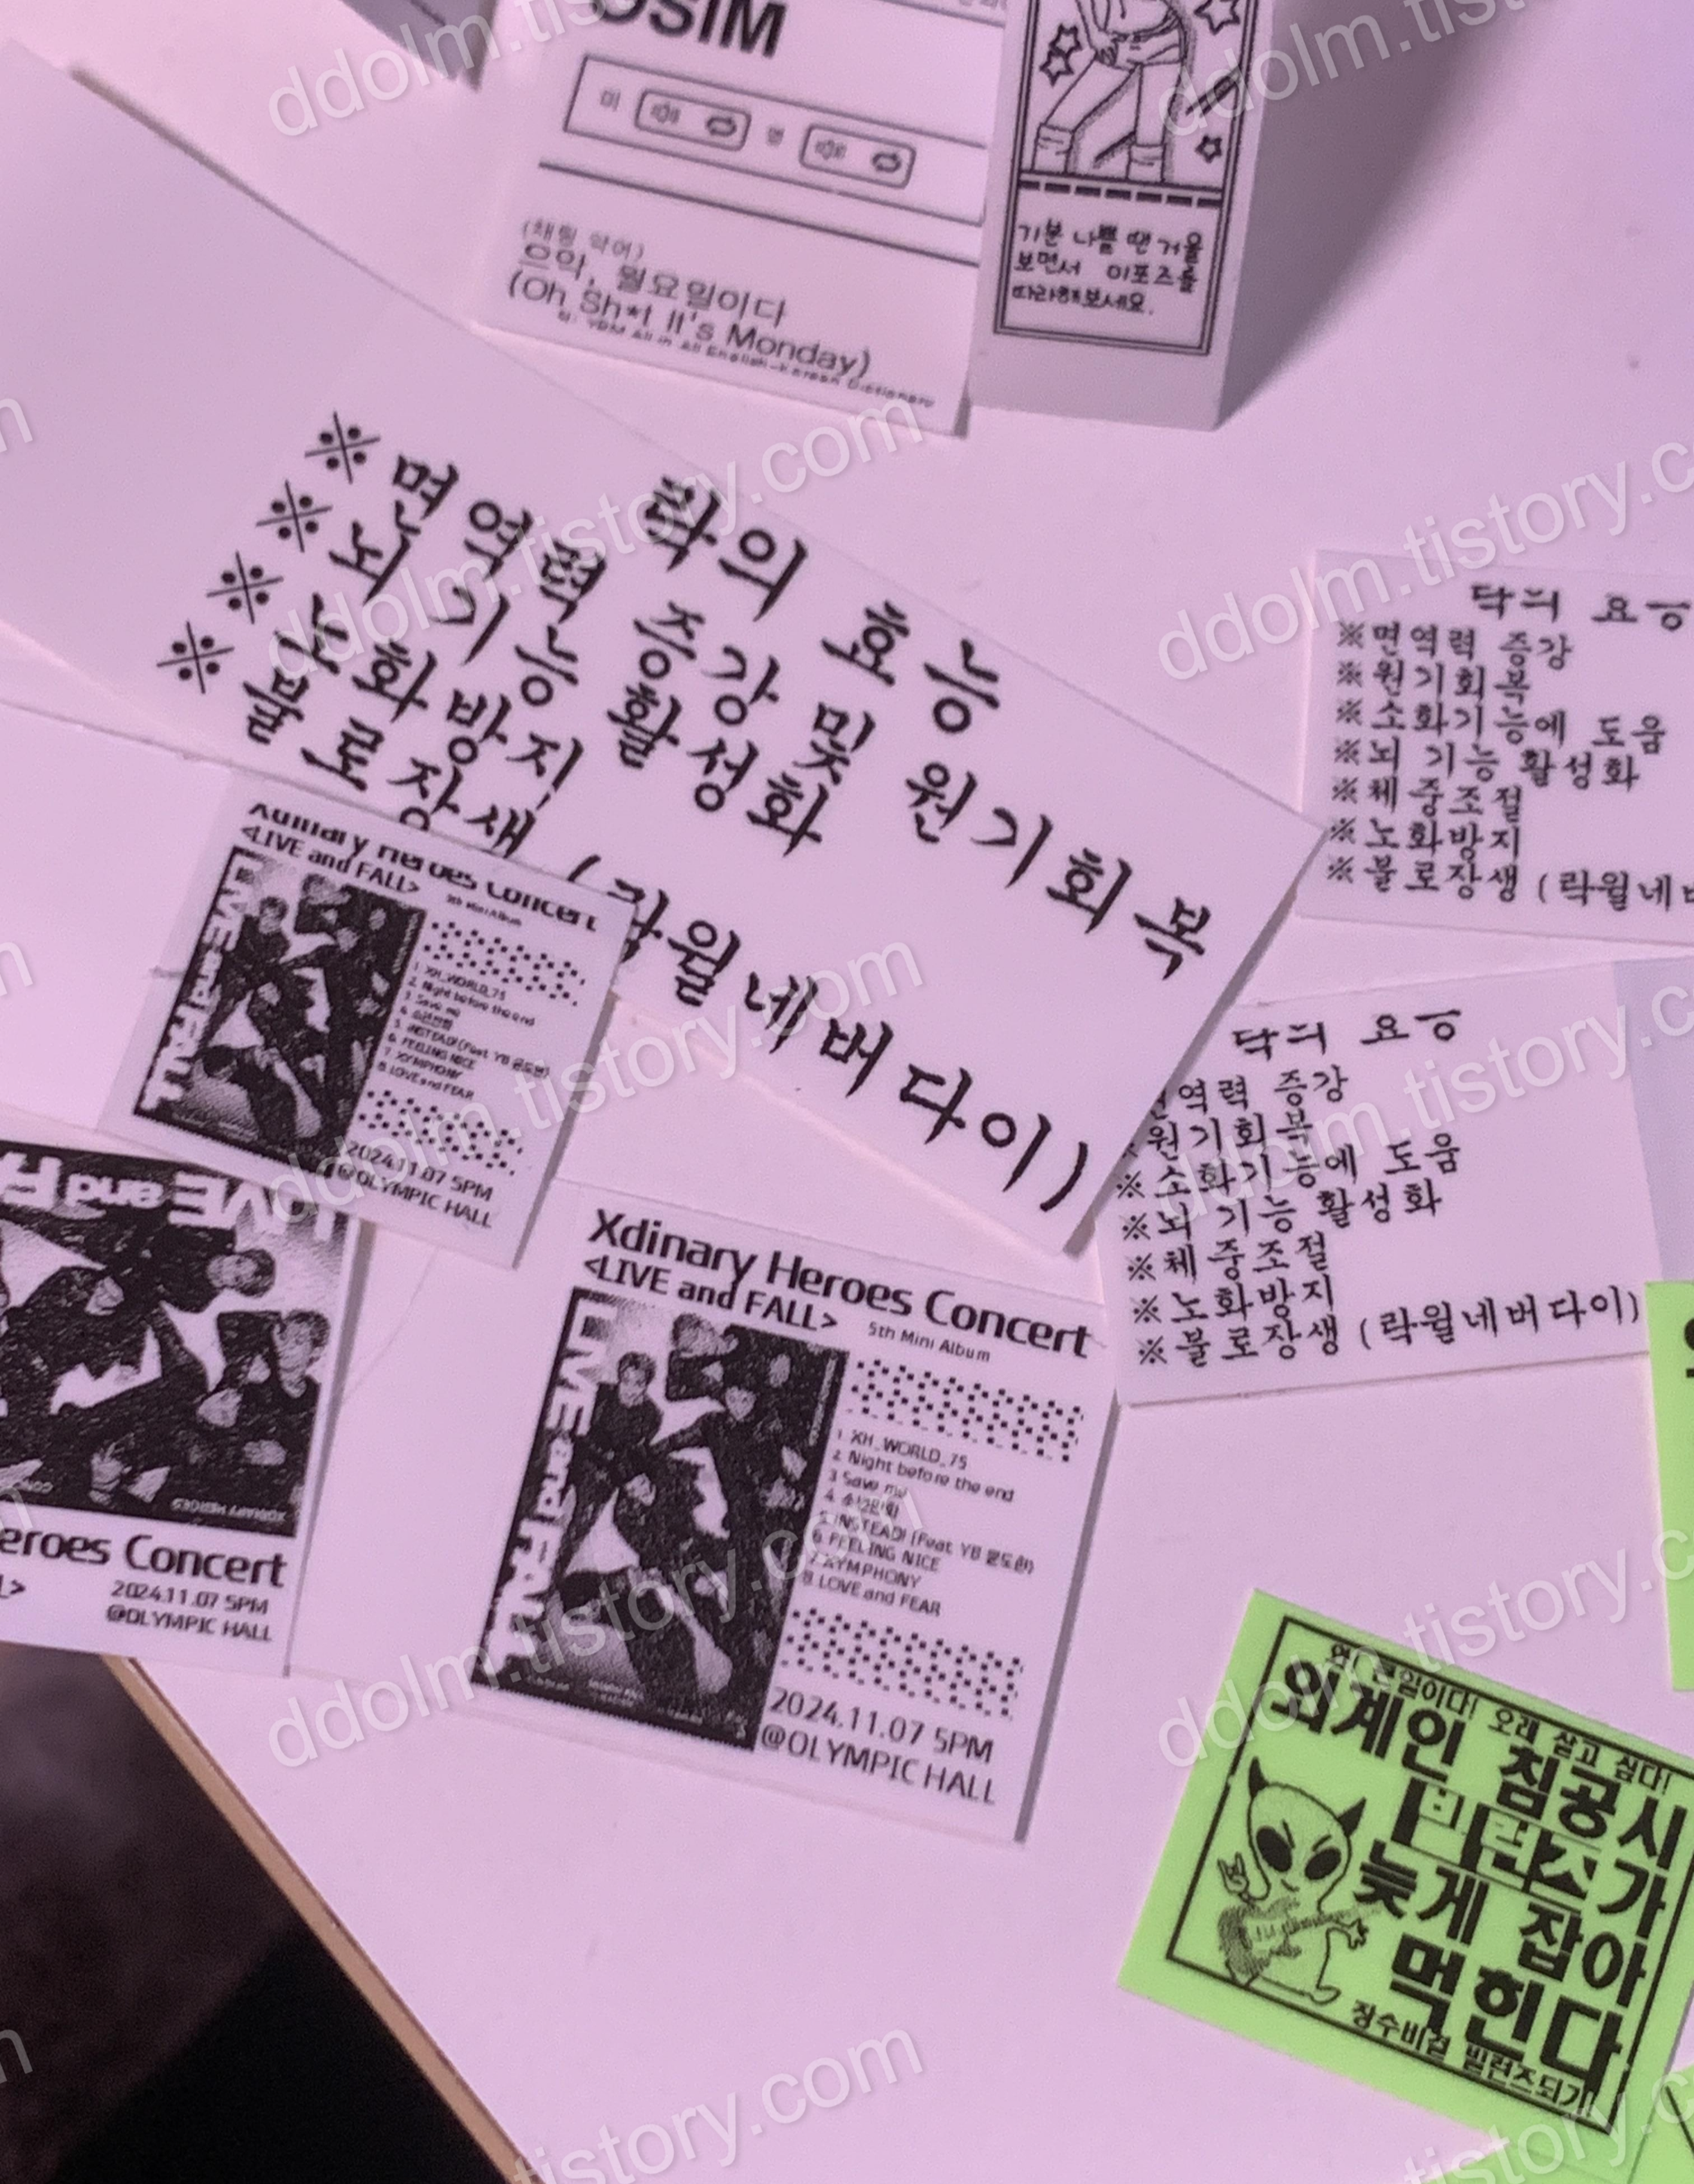 OSIM
미 영
(채팅 약어)
으악, 월요일이다
(Oh Sh*t It's Monday)
기분 나쁠 땐 거울을
보면서 이포즈를
따라해보세요.
락의 효능
※면역력 증강 및 원기회복
※뇌 기능 활성화
※노화방지
※불로장생 (락윌네버다이)
닥늬 요ㅎ
※면역력 증강
※원기회복
※소화기능에 도움
※뇌 기능 활성화
※체중조절
※노화방지
※불로장생 (락윌네버
닥늬 요ㅎ
역력 증강
원기회복
※소화기능에 도움
※뇌 기능 활성화
※체중조절
※노화방지
※불로장생 (락윌네버다이)
Xdinary Heroes Concert
<LIVE and FALL>
5th Mini Album
LIVE and FALL
1. XH_WORLD_75
2. Night before the end
3. Save me
4. 소년만화
5. iNSTEAD! (Feat. YB 윤도현)
6. FEELING NICE
7. XYMPHONY
8. LOVE and FEAR
2024.11.07 5PM
@OLYMPIC HALL
LIVE and FA
XDINARY HEROES
eroes Concert
L>
2024.11.07 5PM
@OLYMPIC HALL
Xdinary Heroes Concert
<LIVE and FALL>
5th Mini Album
LIVE and FALL
1. XH_WORLD_75
2. Night before the end
3. Save me
4. 소년만화
5. iNSTEAD! (Feat. YB 윤도현)
6. FEELING NICE
7. XYMPHONY
8. LOVE and FEAR
2024.11.07 5PM
@OLYMPIC HALL
큰일이다! 오래 살고 싶다!
외계인 침공시
빌런즈가
늦게 잡아
먹힌다
장수비결 빌런즈되기!
ddolm.tistory.com